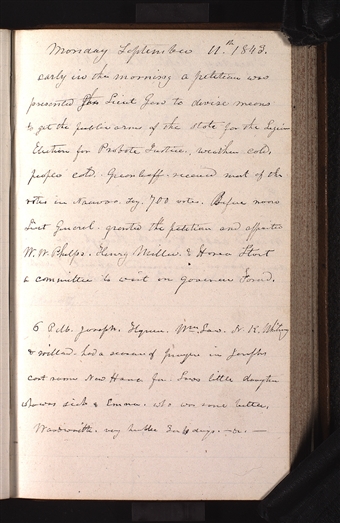 Monday September 11.th 1843.
early in the morning a petition was
presented Lieut Gen to devise means
to get the public arms of the state for the Legion
Election for Probate Justice. weather cold,
people cold. Greenleaf. received most of the
votes in Nauvoo. say. 700 votes. Before noon
Lieut General. granted the petition and appointed
W. W. Phelps. Henry Miller. & Hosea Stout
a committee to wait on Governor Ford.
6 P.M. Joseph. Hyrum. Wm Law. N. K. Whitney
& Willard. had a season of prayer in Josephs
east room New House for. Laws little daughter
who was sick & Emma. who was some better.
very 3 or 4 days.